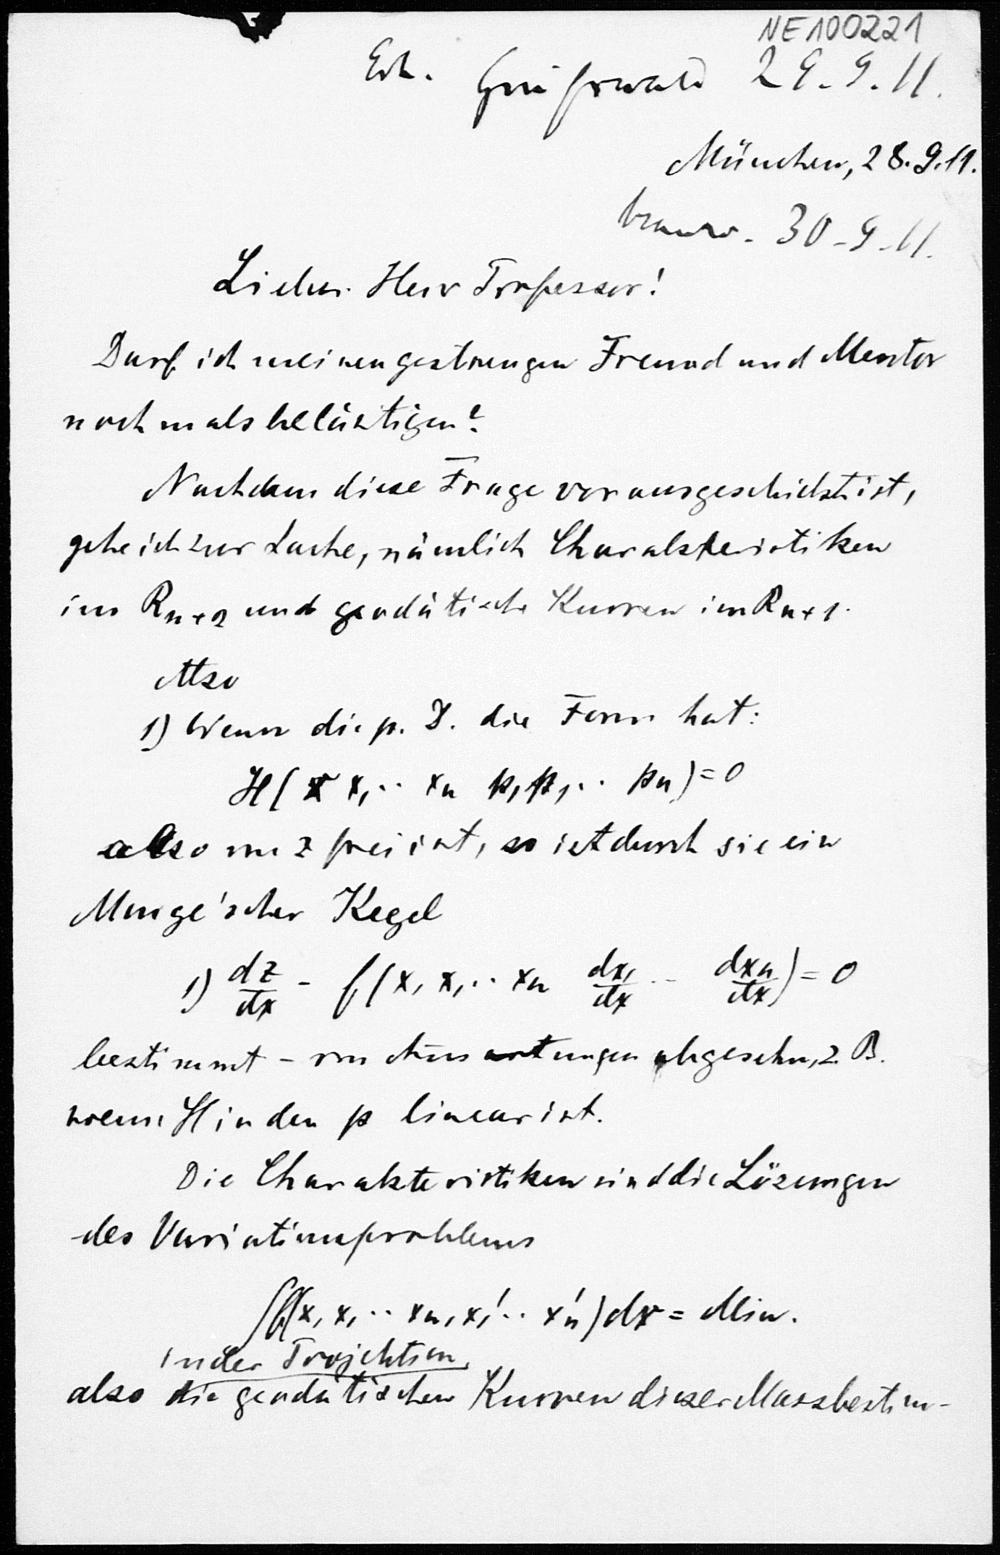 NE100221
Erh. Greifswald 29.9.11.
München, 28.9.11.
beantw. 30-9-11.
Lieber Herr Professor!
Darf ich meinen gestrengen Freund und Mentor
nochmals belästigen?
Nachdem diese Frage vorausgeschickt ist,
gehe ich zur Sache, nämlich Charakteristiken
im Rn+2 und geodätische Kurven im Rn+1.
Also
1) Wenn die p. D. die Form hat:
H(x x₁·· xn p, p₁·· pn)=0
also von z frei ist, so ist durch sie ein
Monge'scher Kegel
1) dz/dx - f(x, x₁·· xn dx₁/dx ·· dxn/dx)=0
bestimmt – von Ausartungen abgesehn, z. B.
wenn H in den p linear ist.
Die Charakteristiken sind die Lösungen
des Variationsproblems
∫f(x, x₁·· xn, x₁'·· xn')dx = Min.
in der Projektion
also die geodätischen Kurven dieser Massbestim-